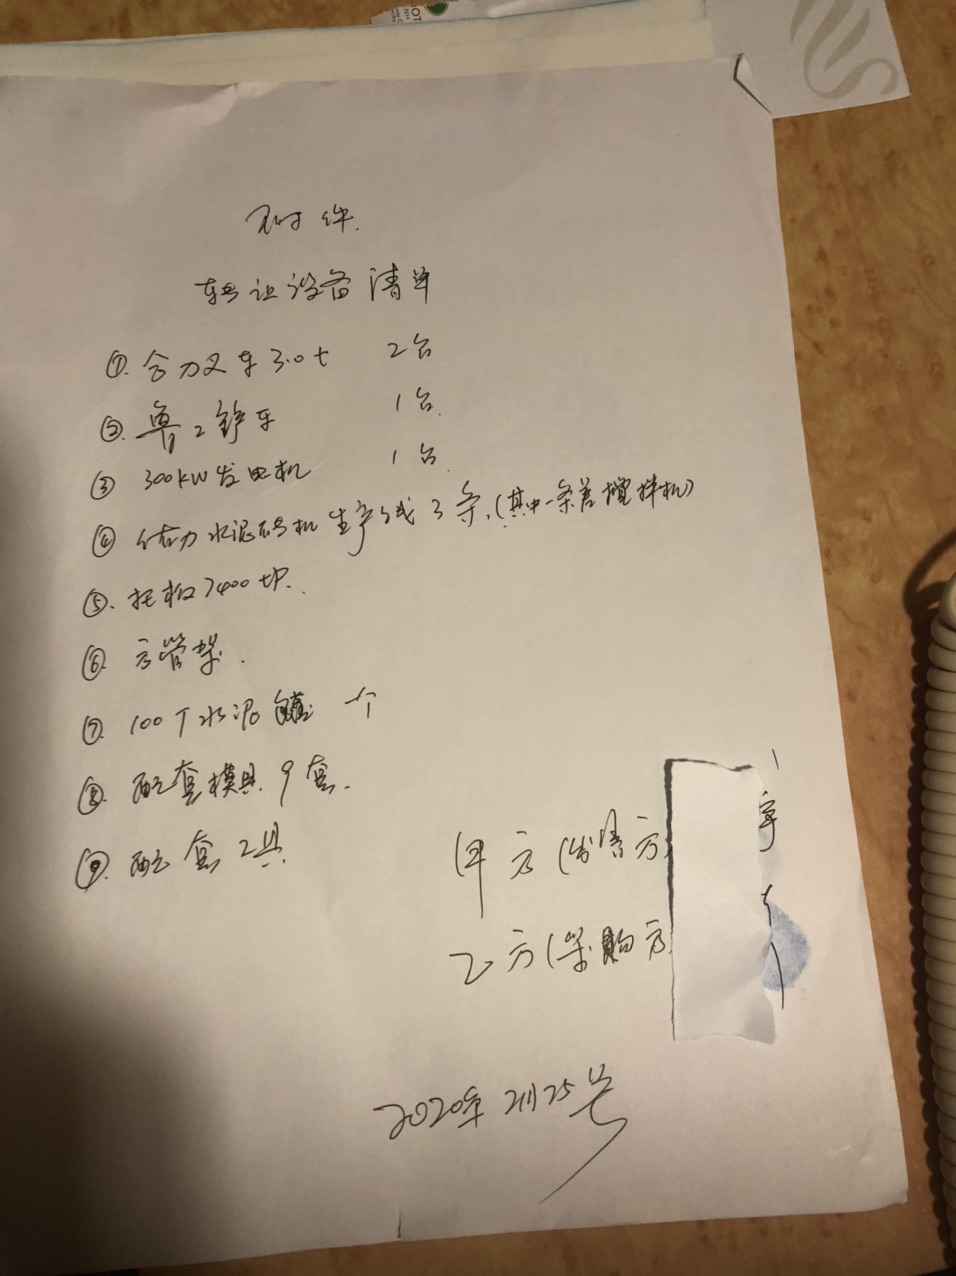 附件.
转让设备清单
①. 合力叉车3.0t 2台
②. 单2铲车 1台.
③ 300kW发电机 1台.
④ 水泥砖机生产线3条.(其中一条差搅拌机)
⑤. 托板7400块.
⑥ 方管架.
⑦ 100T水泥罐 一个
⑧. 配套模具9套.
⑨. 配套工具
甲方(出售方
乙方(采购方
2020年2月25号